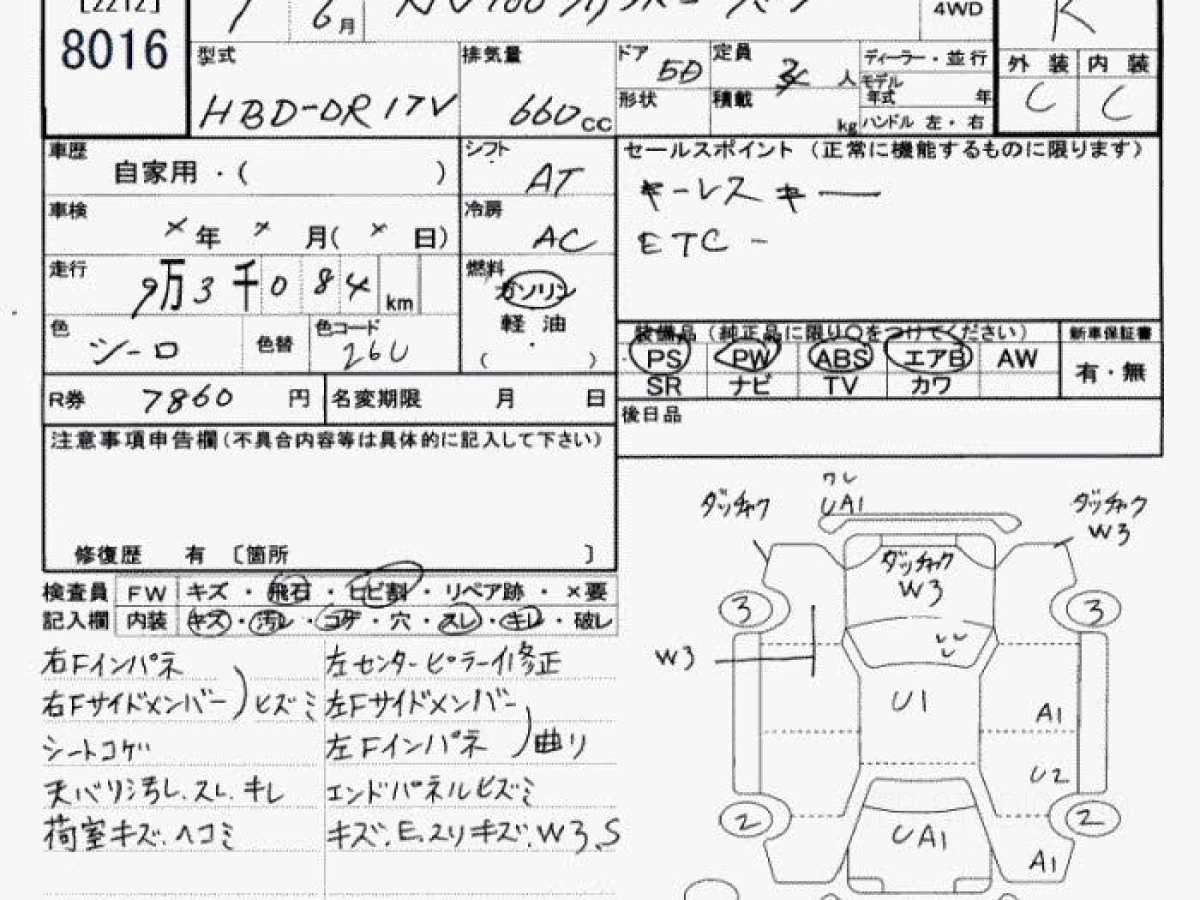 [2212]
8016
6月
NV100クリッパーバン
4WD
R
型式
HBD-DR17V
排気量
660cc
ドア 5D
定員 人
形状
積載 kg
ディーラー・並行
モデル年式 年
ハンドル 左・右
外装 内装
C C
車歴
自家用・( )
シフト
AT
車検
×年 ×月( ×日)
冷房
AC
走行
9万3千084km
燃料
ガソリン
軽油
( ・ )
色
シーロ
色替
色コード
26U
R券 7860円
名変期限 月 日
セールスポイント(正常に機能するものに限ります)
キーレスキー
ETC -
装備品(純正品に限り○をつけてください)
新車保証書
PS PW ABS エアB AW
SR ナビ TV カワ
有・無
後日品
注意事項申告欄(不具合内容等は具体的に記入して下さい)
修復歴 有 〔箇所 〕
検査員 FW キズ・飛石・ヒビ割・リペア跡・×要
記入欄 内装 キズ・汚レ・コゲ・穴・スレ・キレ・破レ
右Fインパネ
右Fサイドメンバー)ヒズミ
シートコゲ
天バリ汚し.スレ.キレ
荷室キズ.ヘコミ
左センターピラーイ修正
左Fサイドメンバー
左Fインパネ)曲り
エンドパネルヒズミ
キズ.E.スリキズ.W3.S
ワレ
ダッチャク UA1 ダッチャク
W3
ダッチャク
W3
3 3
W3
U1
A1
U2
2 2
UA1
A1